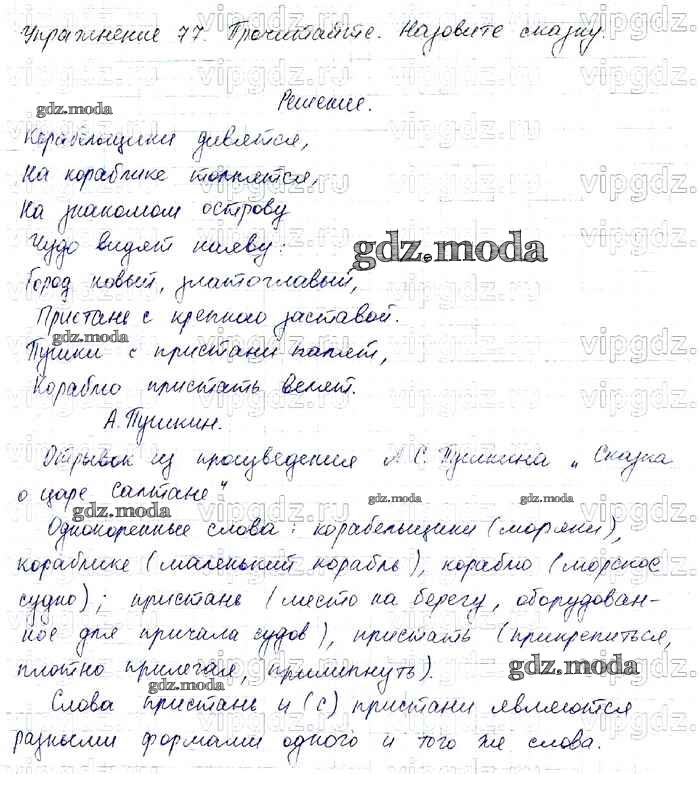 Упражнение 77. Прочитайте. Назовите сказку.
Решение.
gdz.moda
Корабельщики дивятся,
На кораблике толпятся,
На знакомом острову
Чудо видят наяву:
gdz.moda
Город новый, златоглавый,
Пристань с крепкою заставой.
gdz.moda
Пушки с пристани палят,
Кораблю пристать велят.
А.Пушкин.
Отрывок из произведения А.С.Пушкина „Сказка
о царе Салтане"
gdz.moda gdz.moda gdz.moda
Однокоренные слова: корабельщики (моряки),
кораблике (маленький корабль), кораблю (морское
судно); пристань (место на берегу, оборудован-
ное для причала судов), пристать (прикрепиться,
плотно прилегая, прилипнуть).
gdz.moda
gdz.moda
Слова пристань и (с) пристани являются
разными формами одного и того же слова.
vipgdz.ru